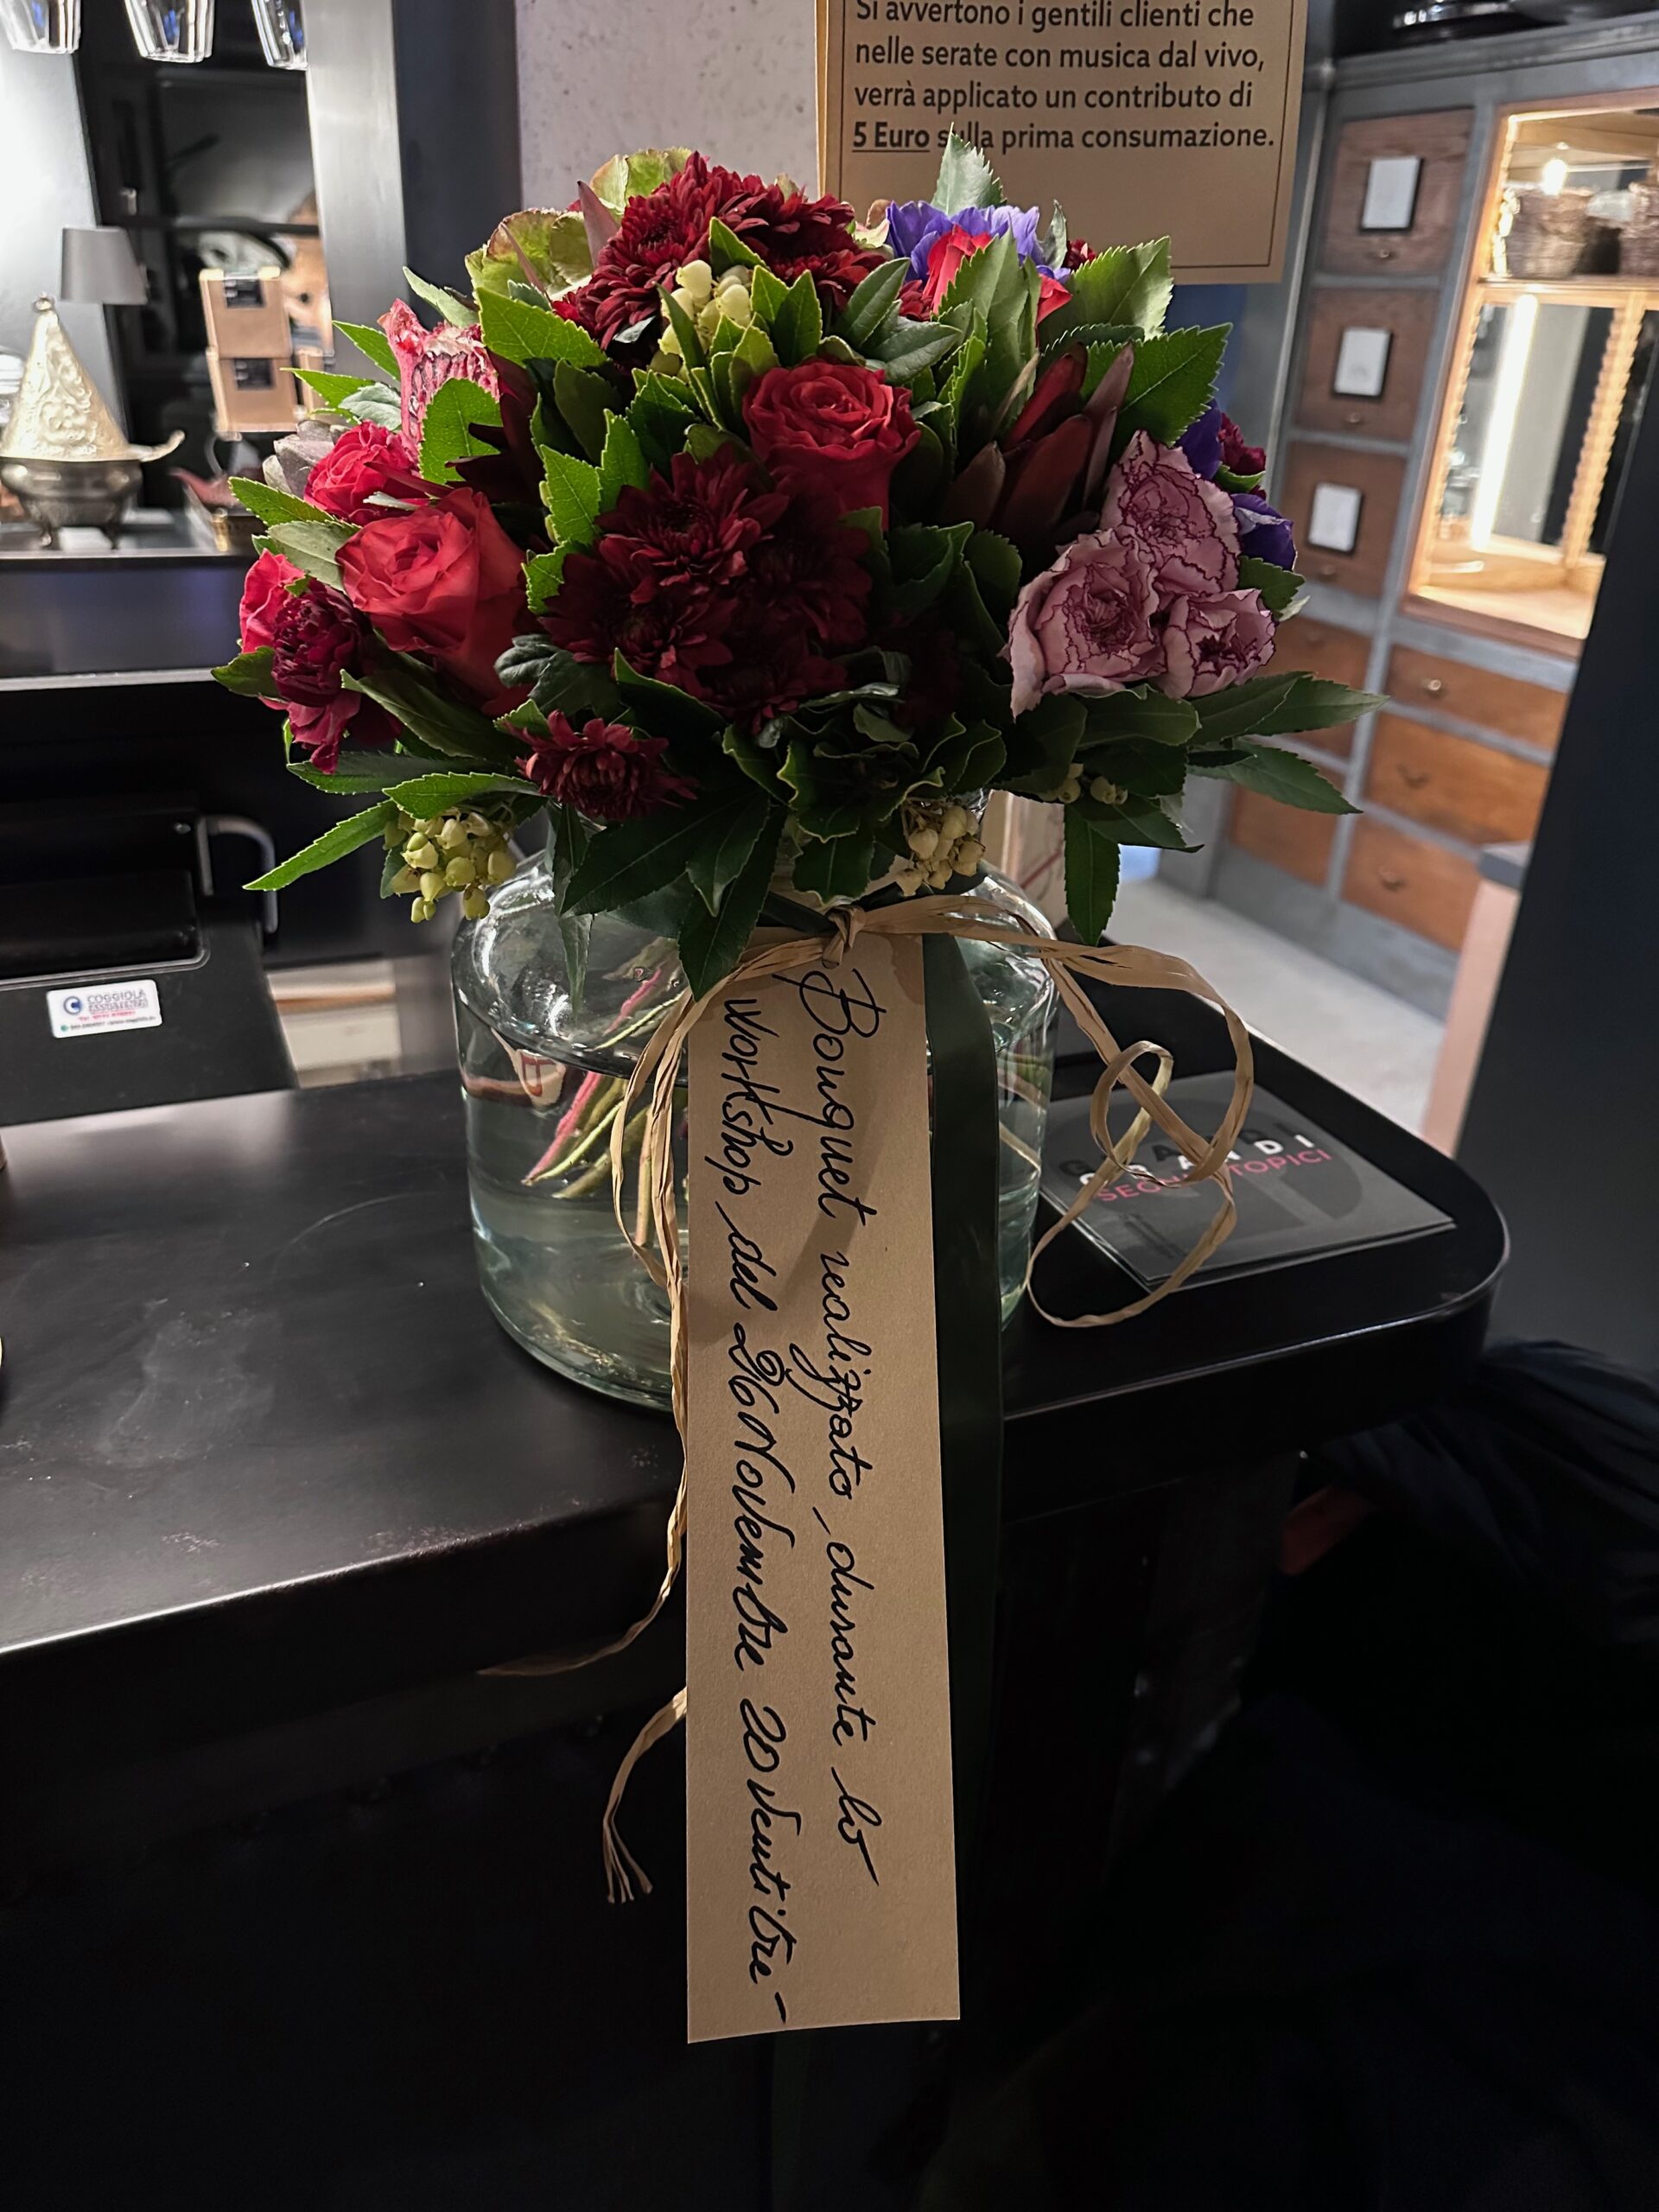 Si avvertono i gentili clienti che
nelle serate con musica dal vivo,
verrà applicato un contributo di
5 Euro sulla prima consumazione.
Bouquet realizzato durante lo
Workshop del 26 Novembre 20ventitre-
COGGIOLA
GRANDI